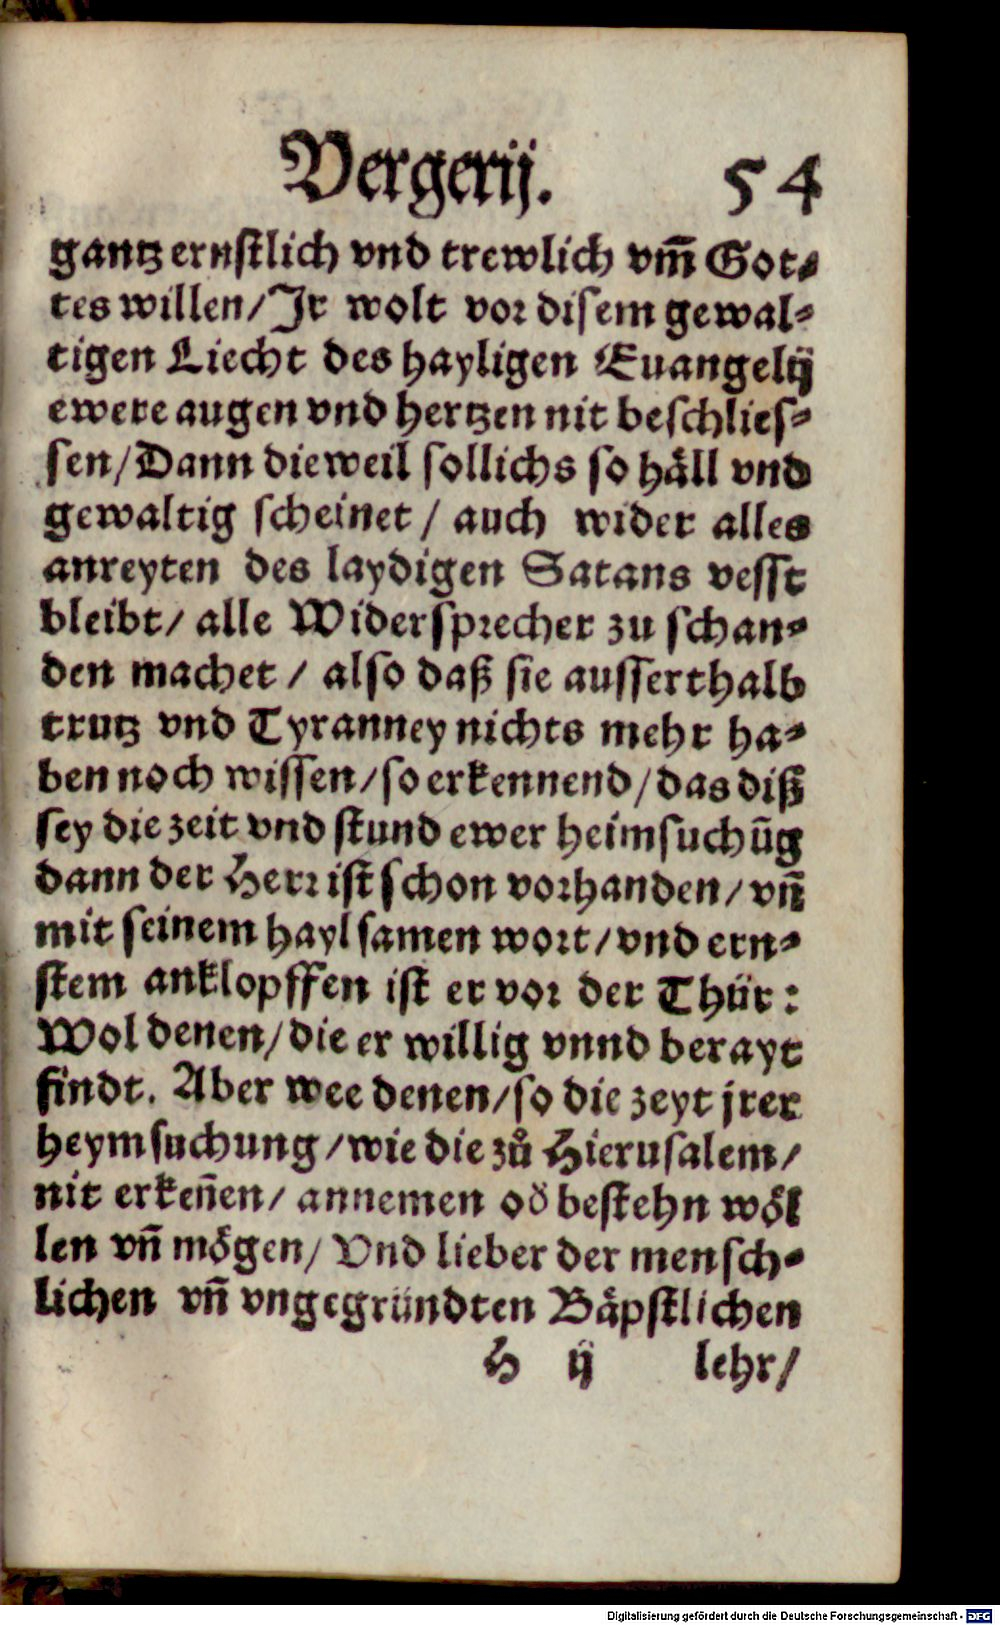 Vergerij. 54
gantz ernstlich vnd trewlich vm̃ Got-
tes willen/ Jr wolt vor disem gewal-
tigen Liecht des hayligen Euangelij
ewere augen vnd hertzen nit beschlies-
sen/ Dann dieweil sollichs so häll vnd
gewaltig scheinet / auch wider alles
anreyten des laydigen Satans vesst
bleibt/ alle Widersprecher zu schan-
den machet / also daß sie ausserthalb
trutz vnd Tyranney nichts mehr ha-
ben noch wissen/ so erkennend/ das diß
sey die zeit vnd stund ewer heimsuchũg
dann der Herr ist schon vorhanden/ vñ
mit seinem haylsamen wort/ vnd ern-
stem anklopffen ist er vor der Thür:
Wol denen/ die er willig vnnd berayt
findt. Aber wee denen/ so die zeyt jrer
heymsuchung/ wie die zů Hierusalem/
nit erkeñen/ annemen od̕ bestehn wöl
len vñ mögen/ Vnd lieber der mensch-
lichen vñ vngegründten Bäpstlichen
H ij lehr/
Digitalisierung gefördert durch die Deutsche Forschungsgemeinschaft - DFG